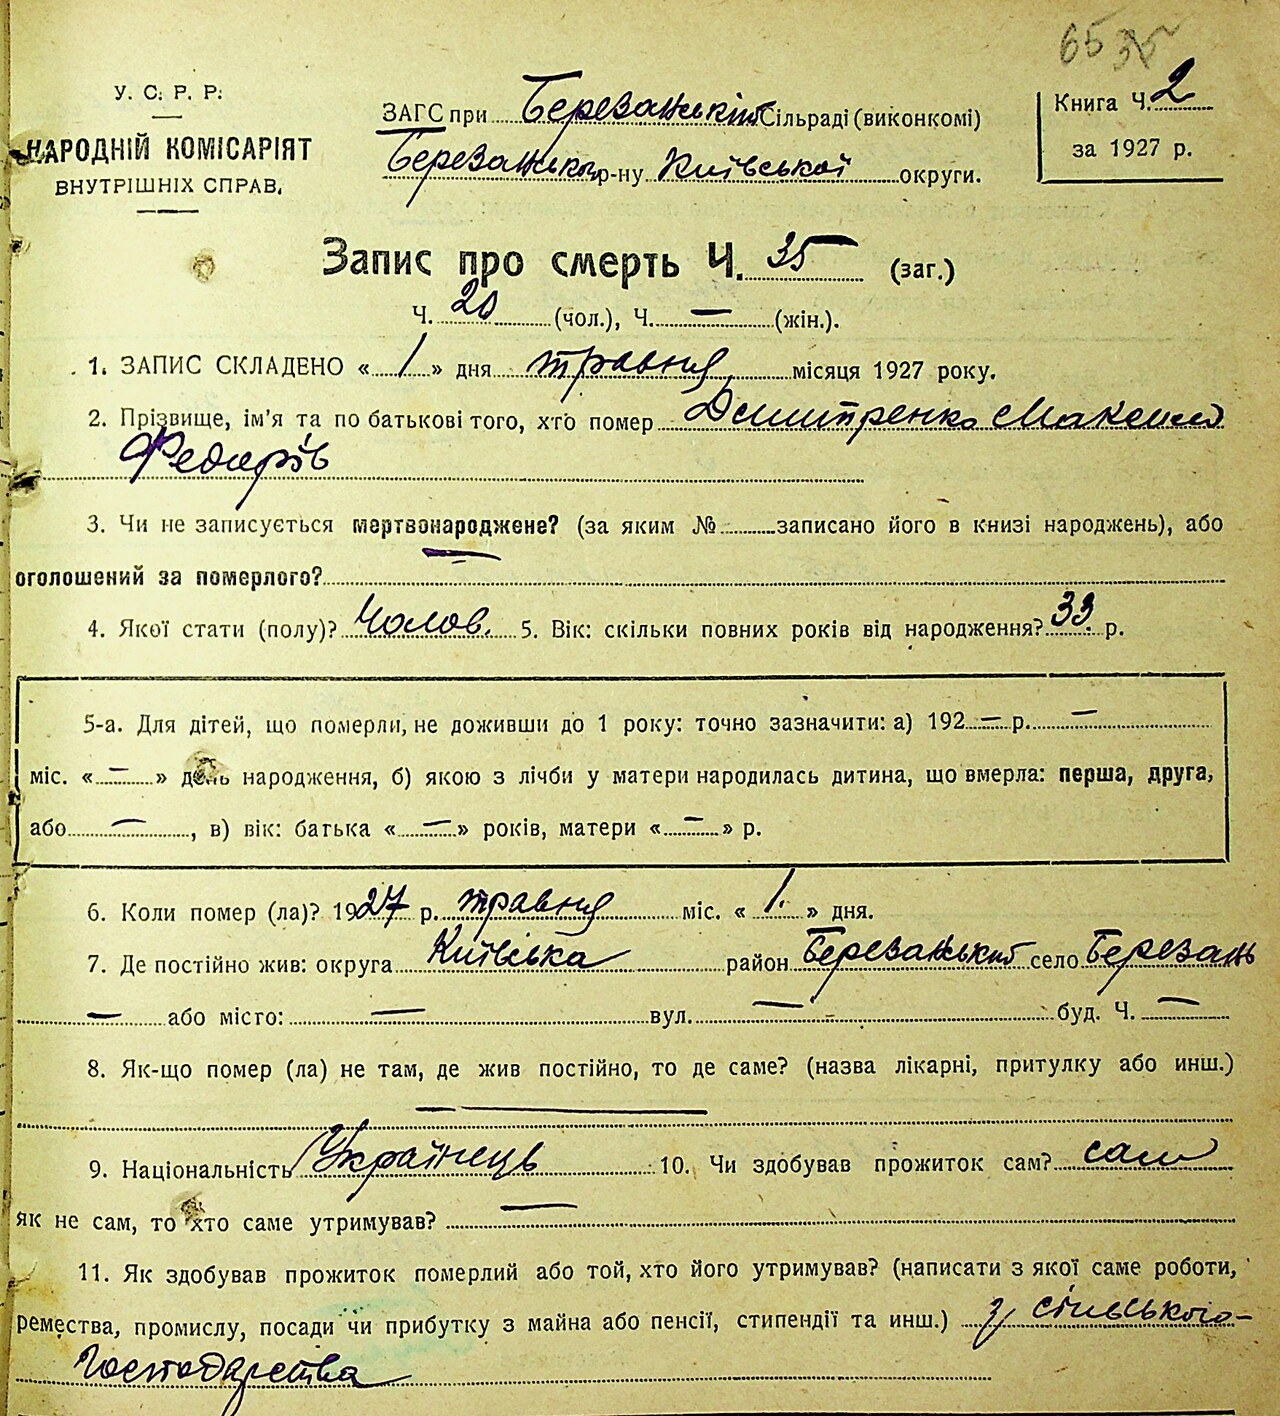 65 35
У. С. Р. Р.
НАРОДНІЙ КОМІСАРІЯТ
ВНУТРІШНІХ СПРАВ.
ЗАГС при Березанській Сільраді (виконкомі)
Березанського р-ну Київської округи.
Книга Ч. 2
за 1927 р.
Запис про смерть Ч. 35 (заг.)
Ч. 20 (чол.), Ч. — (жін.).
1. ЗАПИС СКЛАДЕНО «1» дня травня місяця 1927 року.
2. Прізвище, ім'я та по батькові того, хто помер Дмитренко Максим
Федорів
3. Чи не записується мертвонароджене? (за яким № записано його в книзі народжень), або
оголошений за померлого?
4. Якої стати (полу)? Чолов. 5. Вік: скільки повних років від народження? 33 р.
5-а. Для дітей, що померли, не доживши до 1 року: точно зазначити: а) 192 — р. —
міс. « — » день народження, б) якою з лічби у матери народилась дитина, що вмерла: перша, друга,
або —, в) вік: батька « — » років, матери « — » р.
6. Коли помер (ла)? 1927 р. травня міс. « 1. » дня.
7. Де постійно жив: округа Київська район Березанський село Березань
— або місто: — вул. — буд. Ч. —
8. Як-що помер (ла) не там, де жив постійно, то де саме? (назва лікарні, притулку або инш.)
—
9. Національність Українець 10. Чи здобував прожиток сам? сам
як не сам, то хто саме утримував? —
11. Як здобував прожиток померлий або той, хто його утримував? (написати з якої саме роботи,
ремества, промислу, посади чи прибутку з майна або пенсії, стипендії та инш.) з сільського-
Господарства